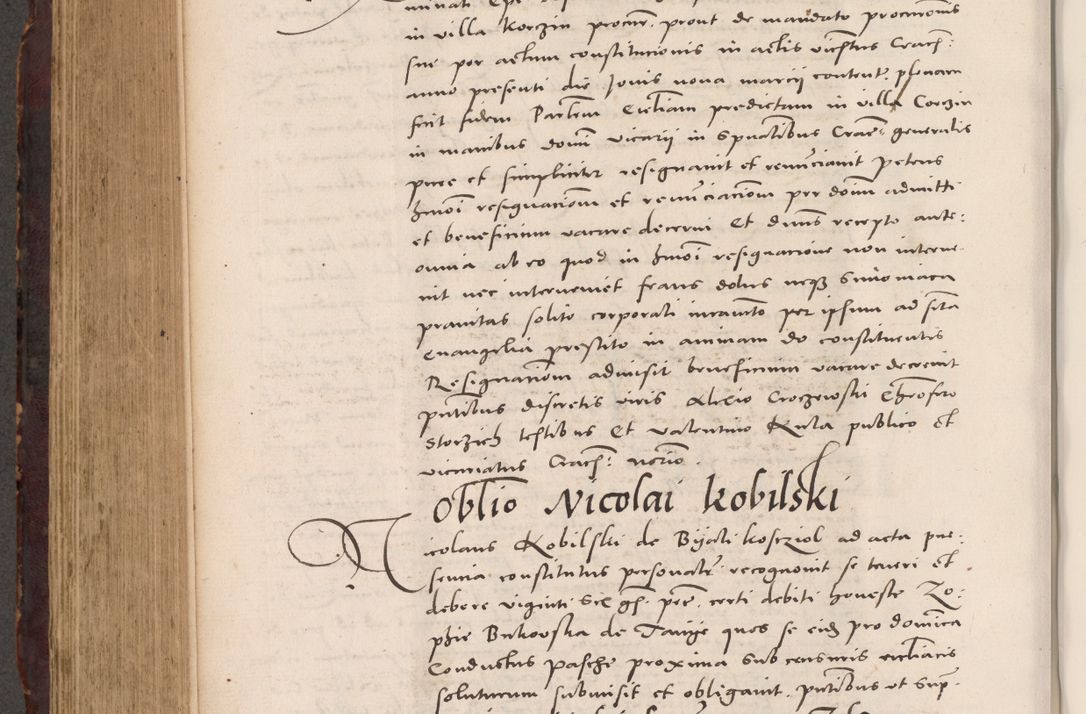 in villa korczin procur: prout de mandato procurationis
sue per actum constitucionis in actis vic̄ritus Crac̄:
anno presenti die Jovis nona marcij content: plenam
fecit fidem Par̄lem Eccl̄iam predictam in villa Corczin
in manibus domī vicarij in sp̄ualibus Crac̄: generalis
pure et simpliciter resignavit et renūciavit petens
hmōi resignaciom̄ et renūciaciom̄ per dom̄ admitti
et beneficium vacare decerni Et dn̄us recepto ante:
omnia ab eo quod in hmōi resignacione non interve
nit nec interveniet fraus dolus neq₃ Simōniaca
pravitas solito corporali iuram̄to per ipsum ad s̄cta
Euangelia prestito in animam do constituentis
Resignaciom̄ admisit beneficium vacare decrevit
pn̄tibus discretis viris Alexio Croczowski Chr̄ofero
Storzich testibus Et valentino Kula publico et
vicariatus Crac̄: not̄rio.
Obl̄io Nicolai kobilski
Nicolaus Kobilski de Biali kosczol ad acta pre:
sencia constitutus personal̄r recognovit se teneri et
debere viginti sex gr̄: per: certi debiti honeste Zo:
phie Bukowska de quos se eid̄ pro dominica
Conductus pasche proxima sub censuris eccl̄iacis
soluturum submisit et obligavit. pn̄tibus ut sup̄.